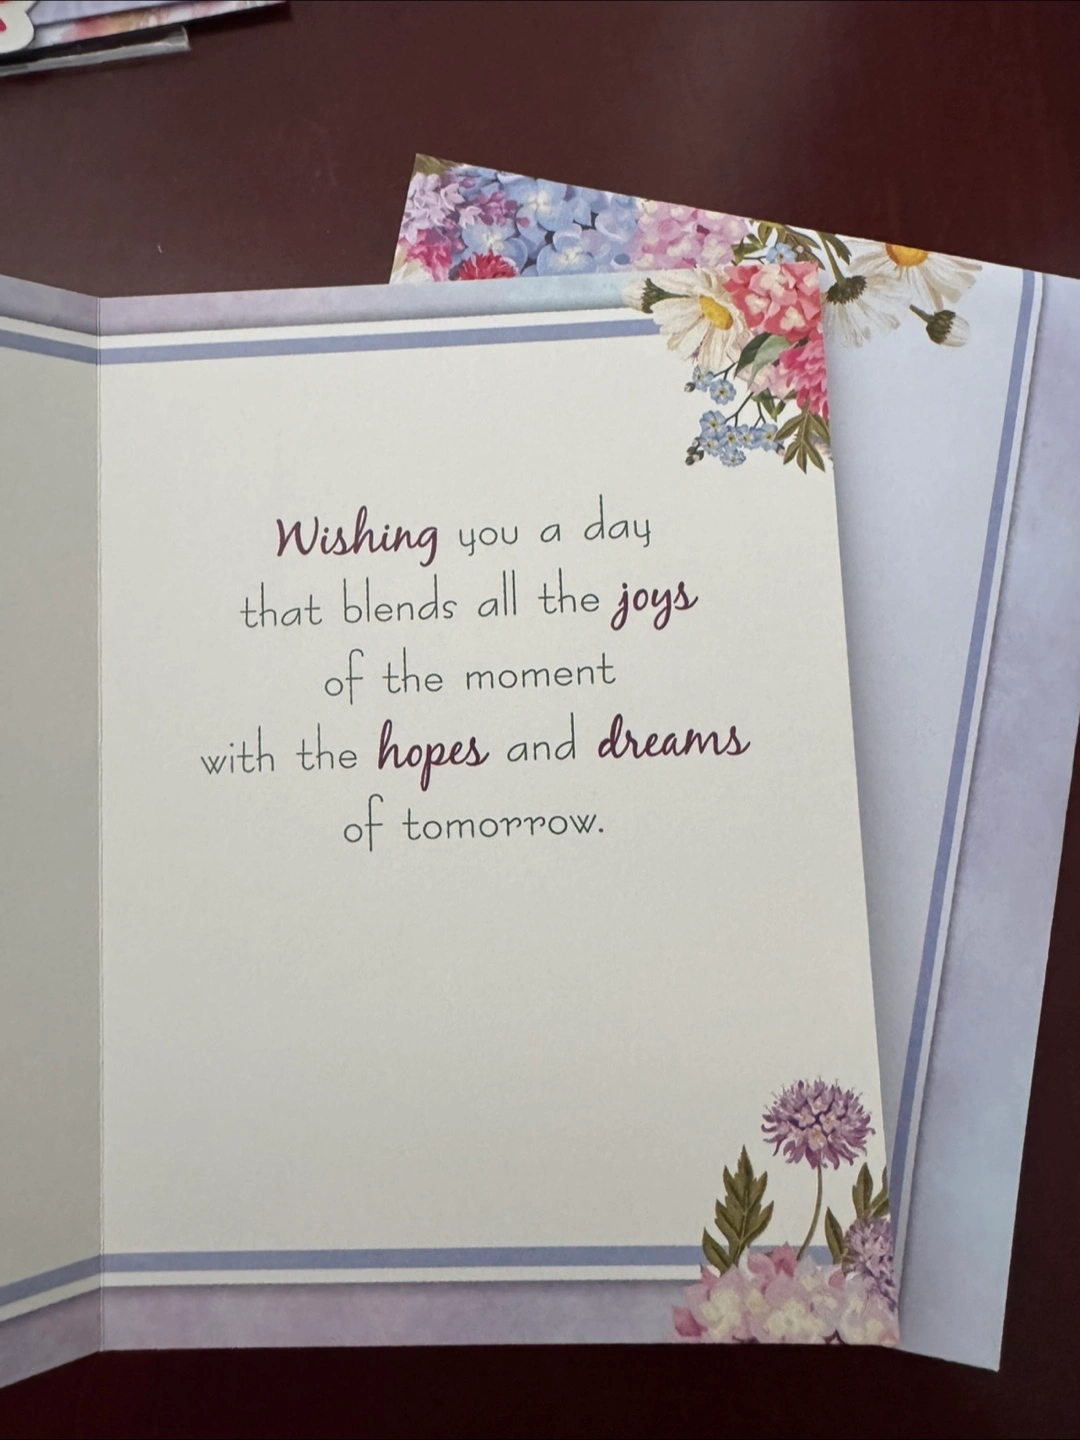 Wishing you a day
that blends all the joys
of the moment
with the hopes and dreams
of tomorrow.